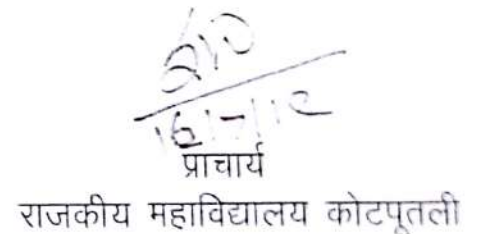 प्राचार्य
राजकीय महाविद्यालय कोटपूतली